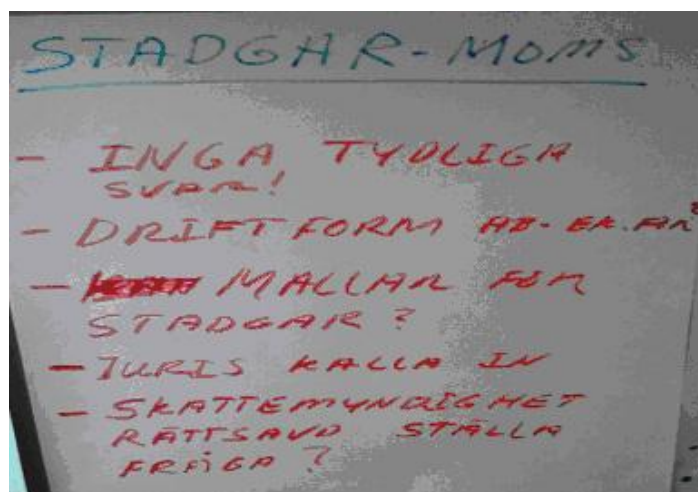 STADGAR-MOMS
- INGA TYDLIGA
SVAR!
- DRIFTFORM AB-EK.FÖR?
- MALLAR FÖR
STADGAR?
- JURIS KALLA IN
- SKATTEMYNDIGHET
RÄTTSAVD STÄLLA
FRÅGA?